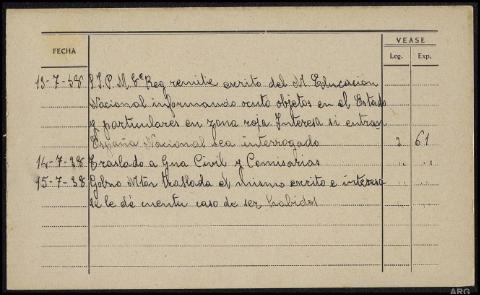 VEASE
FECHA
Leg. Exp.
13-7-38 S.I.P.M. Reg remite escrito del M. Educacion
Nacional informando objetos en el Estado
y particulares en zona roja Interesa si entran
España Nacional sea interrogado 2 61
14-7-38 Traslado a Gua Civil y Comisarias " "
15-7-38 Gobno Mtar traslada el mismo escrito e interesa " "
se le dé cuenta caso de ser habidos
ARG